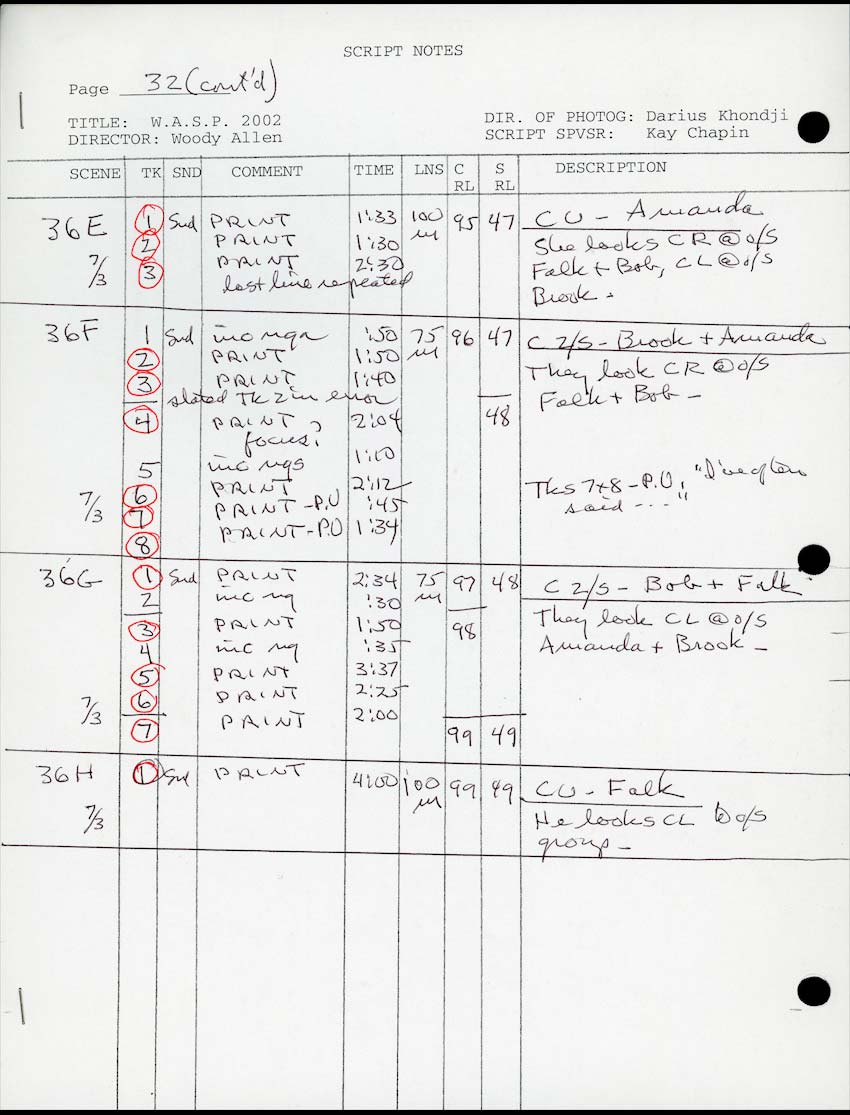 SCRIPT NOTES
Page 32 (cont'd)
TITLE: W.A.S.P. 2002 DIR. OF PHOTOG: Darius Khondji
DIRECTOR: Woody Allen SCRIPT SPVSR: Kay Chapin
SCENE TK SND COMMENT TIME LNS C RL S RL DESCRIPTION
36E 1 Snd PRINT 1:33 100 m 95 47 CU - Amanda
2 PRINT 1:30 She looks CR @ o/s
7/3 3 PRINT 2:30 Falk + Bob, CL @ o/s
last line repeated Brook.
36F 1 Snd inc ngn :50 75 m 96 47 C 2/S - Brook + Amanda
2 PRINT 1:50 They look CR @ o/s
3 PRINT 1:40 Falk + Bob -
slated Tk 2 in error
4 PRINT 2:04 48
focus?
5 inc ngs 1:10
6 PRINT 2:12 Tks 7+8 - P.U. "I've often
7/3 7 PRINT - P.U :45 said ---"
8 PRINT - P.U 1:34
36G 1 Snd PRINT 2:34 75 m 97 48 C 2/S - Bob + Falk
2 inc ng :30 They look CL @ o/s
3 PRINT 1:50 98 Amanda + Brook -
4 inc ng :35
5 PRINT 3:37
7/3 6 PRINT 2:25
7 PRINT 2:00 99 49
36H 1 Snd PRINT 4:00 100 m 99 49 CU - Falk
7/3 He looks CL @ o/s
group -